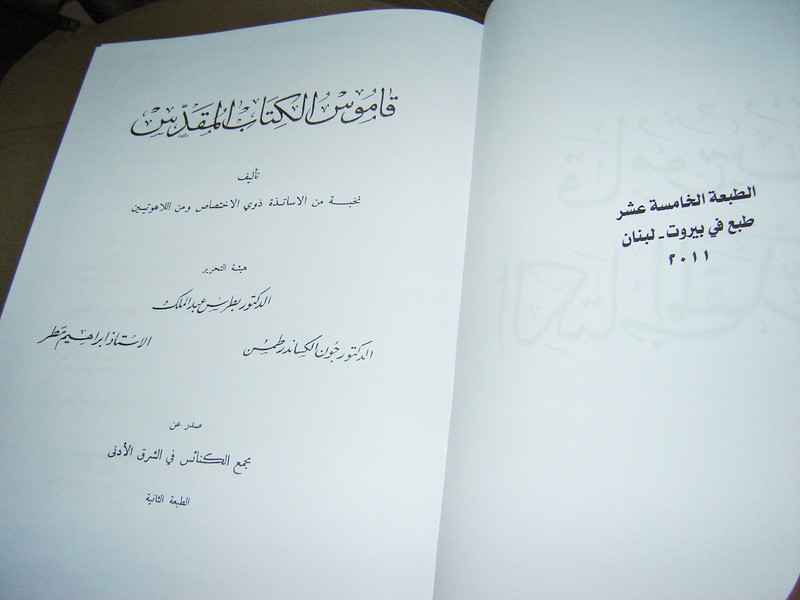 الطبعة الخامسة عشر
طبع في بيروت - لبنان
٢٠١١
قاموس الكتاب المقدس
تأليف
نخبة من الاساتذة ذوي الاختصاص ومن اللاهوتيين
هيئة التحرير
الدكتور بطرس عبد الملك
الدكتور جون الكساندر طمسن
الاستاذ ابراهيم مطر
صدر عن
مجمع الكنائس في الشرق الأدنى
الطبعة الثانية